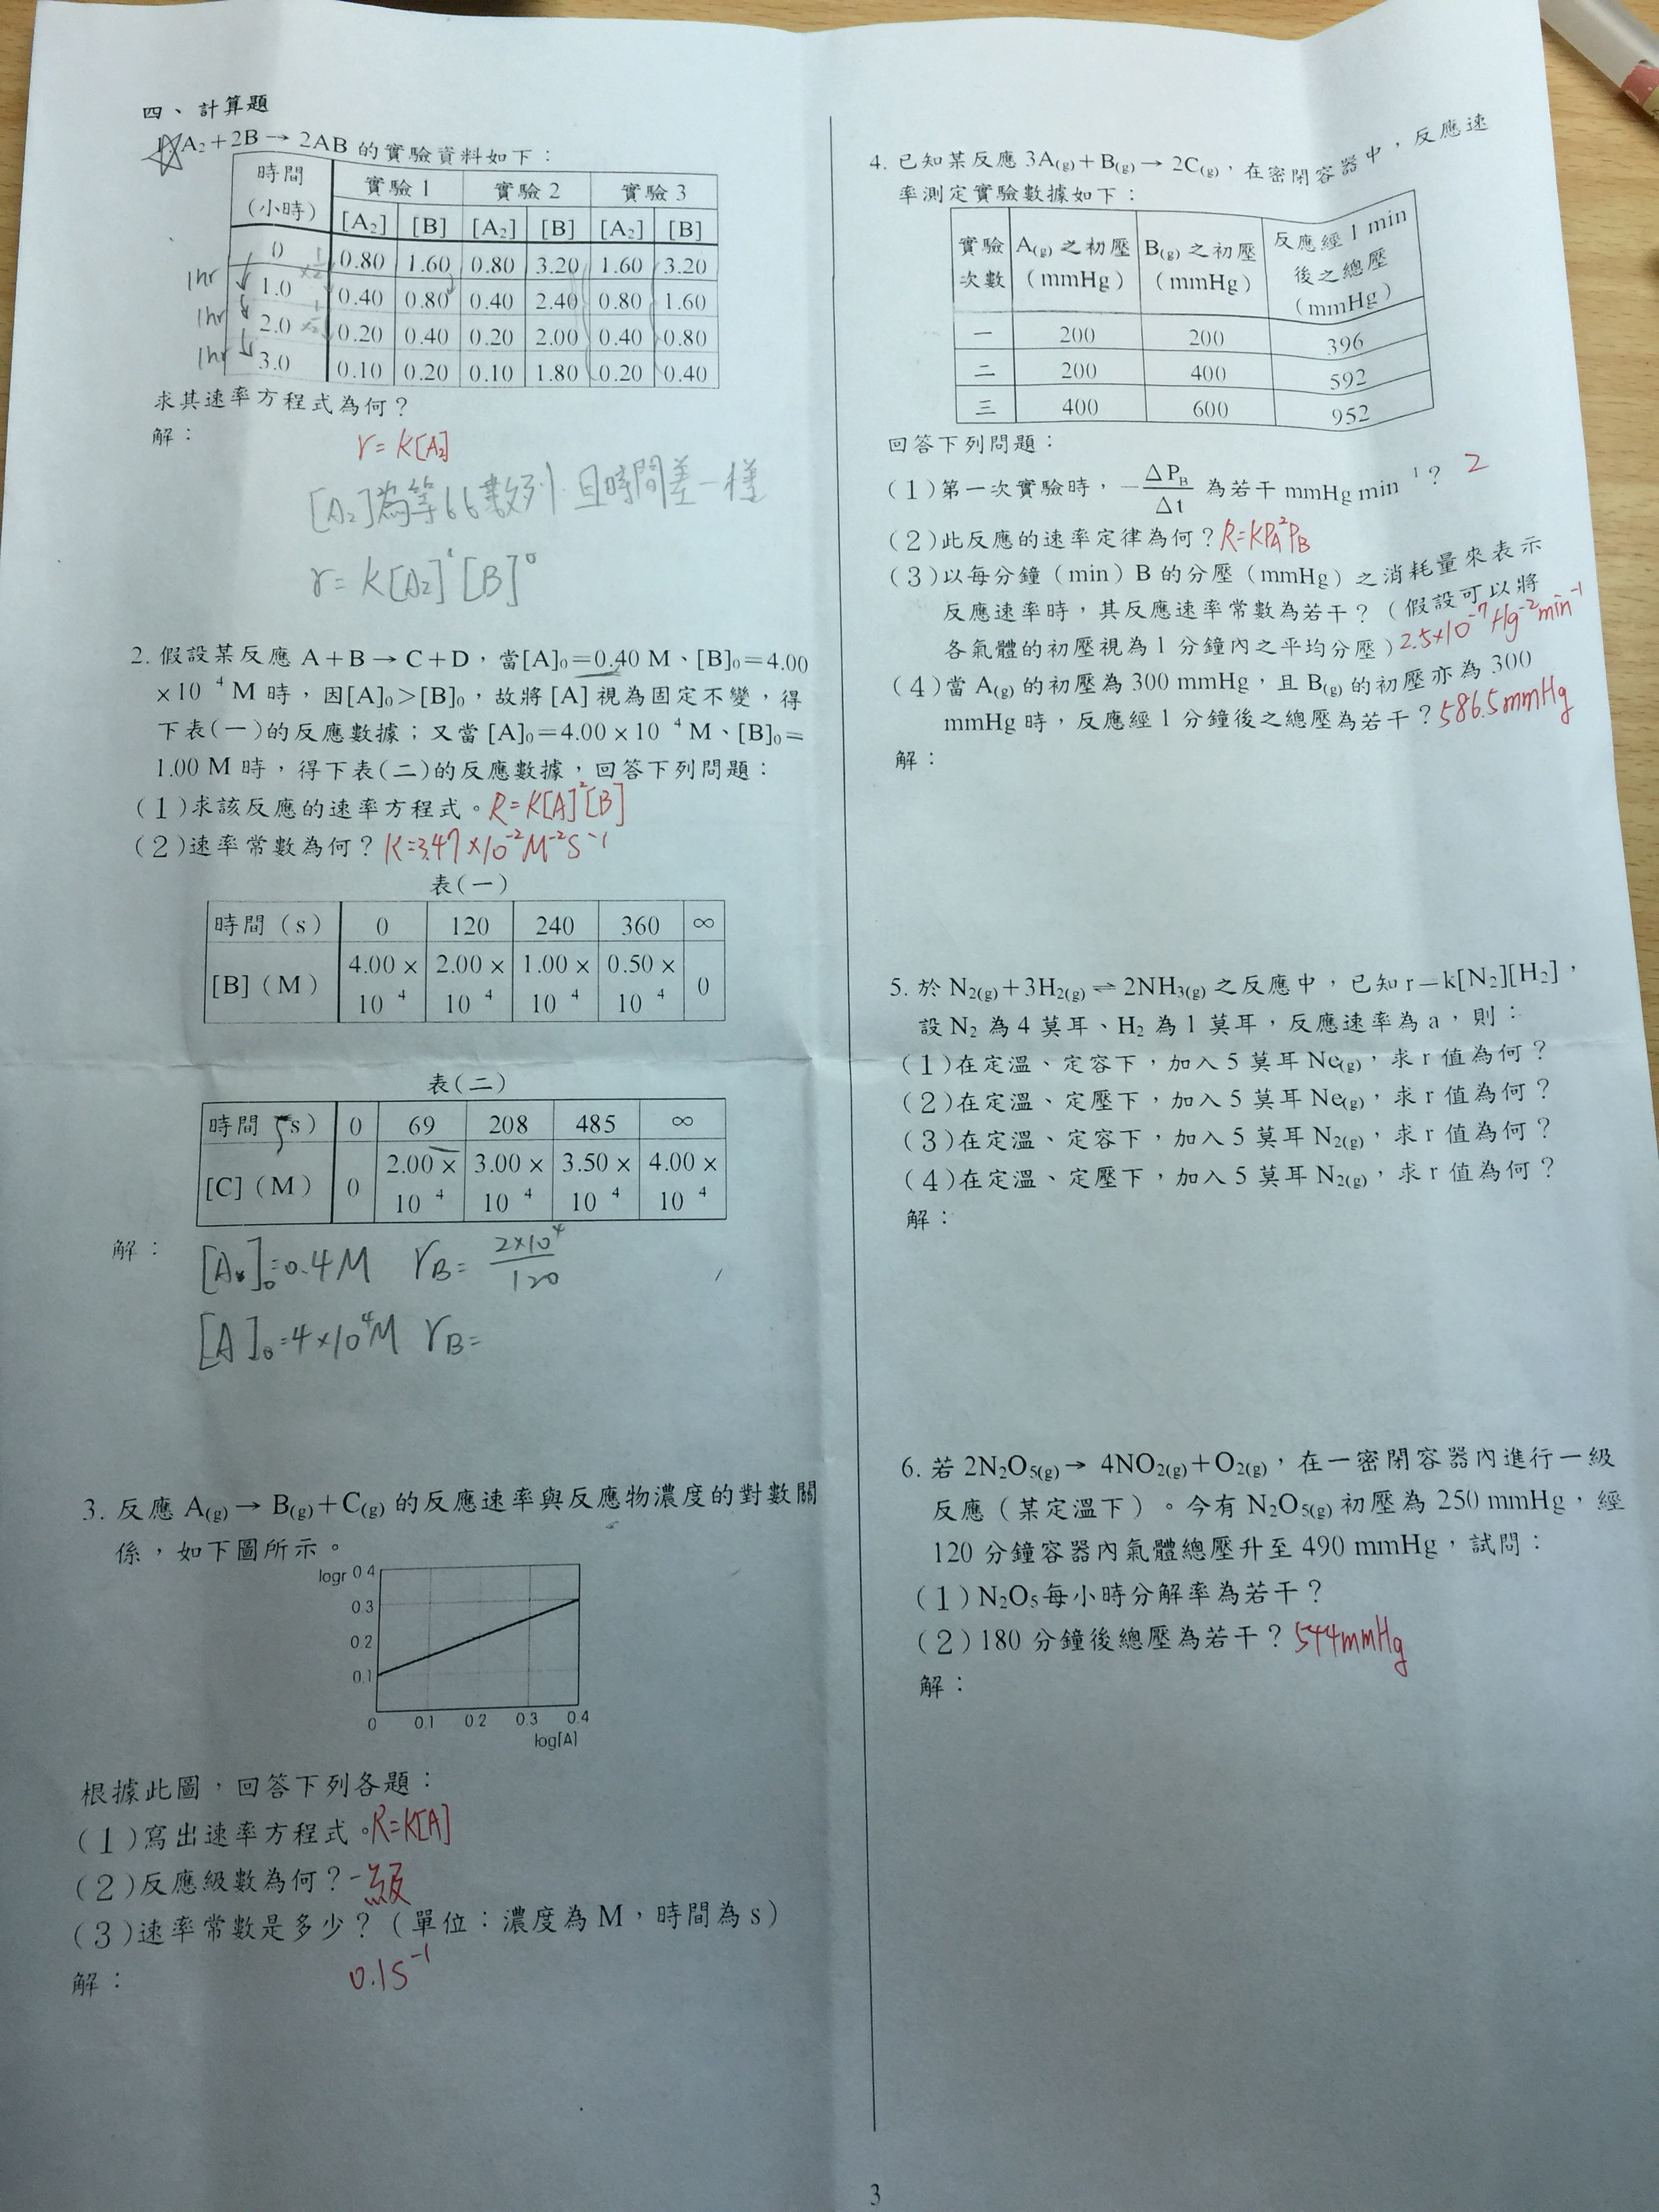 四、計算題
1. A₂+2B→2AB 的實驗資料如下：
時間（小時） 實驗1 實驗2 實驗3
[A₂] [B] [A₂] [B] [A₂] [B]
0 0.80 1.60 0.80 3.20 1.60 3.20
1.0 0.40 0.80 0.40 2.40 0.80 1.60
2.0 0.20 0.40 0.20 2.00 0.40 0.80
3.0 0.10 0.20 0.10 1.80 0.20 0.40
1hr
1hr
1hr
×1/2
×1/2
求其速率方程式為何？
解：
r=K[A₂]
[A₂]為等比數列.且時間差一樣
r=K[A₂]¹[B]⁰
2. 假設某反應 A+B→C+D，當[A]₀=0.40 M、[B]₀=4.00
×10 ⁴ M 時，因[A]₀>[B]₀，故將 [A] 視為固定不變，得
下表(一)的反應數據；又當 [A]₀=4.00×10 ⁴ M、[B]₀=
1.00 M 時，得下表(二)的反應數據，回答下列問題：
(1)求該反應的速率方程式。R=K[A]²[B]
(2)速率常數為何？K=3.47×10⁻²M⁻²S⁻¹
表(一)
時間（s） 0 120 240 360 ∞
[B]（M） 4.00×10 ⁴ 2.00×10 ⁴ 1.00×10 ⁴ 0.50×10 ⁴ 0
表(二)
時間（s） 0 69 208 485 ∞
[C]（M） 0 2.00×10 ⁴ 3.00×10 ⁴ 3.50×10 ⁴ 4.00×10 ⁴
解：
[A]₀=0.4M rB= 2×10⁴/120
[A]₀=4×10⁴M rB=
3. 反應 A(g)→B(g)+C(g) 的反應速率與反應物濃度的對數關
係，如下圖所示。
logr 0.4
0.3
0.2
0.1
0 0.1 0.2 0.3 0.4
log[A]
根據此圖，回答下列各題：
(1)寫出速率方程式。R=K[A]
(2)反應級數為何？一級
(3)速率常數是多少？（單位：濃度為 M，時間為 s）
解：
0.1S⁻¹
4. 已知某反應 3A(g)+B(g)→2C(g)，在密閉容器中，反應速
率測定實驗數據如下：
實驗次數 A(g) 之初壓（mmHg） B(g) 之初壓（mmHg） 反應經 1 min 後之總壓（mmHg）
一 200 200 396
二 200 400 592
三 400 600 952
回答下列問題：
(1)第一次實驗時，−ΔPB/Δt 為若干 mmHg min ¹？ 2
(2)此反應的速率定律為何？R=KPA²PB
(3)以每分鐘（min）B 的分壓（mmHg）之消耗量來表示
反應速率時，其反應速率常數為若干？（假設可以將
各氣體的初壓視為 1 分鐘內之平均分壓）2.5×10⁻⁷Hg⁻²min⁻¹
(4)當 A(g) 的初壓為 300 mmHg，且 B(g) 的初壓亦為 300
mmHg 時，反應經 1 分鐘後之總壓為若干？586.5mmHg
解：
5. 於 N₂(g)+3H₂(g)⇌2NH₃(g) 之反應中，已知 r=k[N₂][H₂]，
設 N₂ 為 4 莫耳、H₂ 為 1 莫耳，反應速率為 a，則：
(1)在定溫、定容下，加入 5 莫耳 Ne(g)，求 r 值為何？
(2)在定溫、定壓下，加入 5 莫耳 Ne(g)，求 r 值為何？
(3)在定溫、定容下，加入 5 莫耳 N₂(g)，求 r 值為何？
(4)在定溫、定壓下，加入 5 莫耳 N₂(g)，求 r 值為何？
解：
6. 若 2N₂O₅(g)→ 4NO₂(g)+O₂(g)，在一密閉容器內進行一級
反應（某定溫下）。今有 N₂O₅(g) 初壓為 250 mmHg，經
120 分鐘容器內氣體總壓升至 490 mmHg，試問：
(1)N₂O₅每小時分解率為若干？
(2)180 分鐘後總壓為若干？544mmHg
解：
3